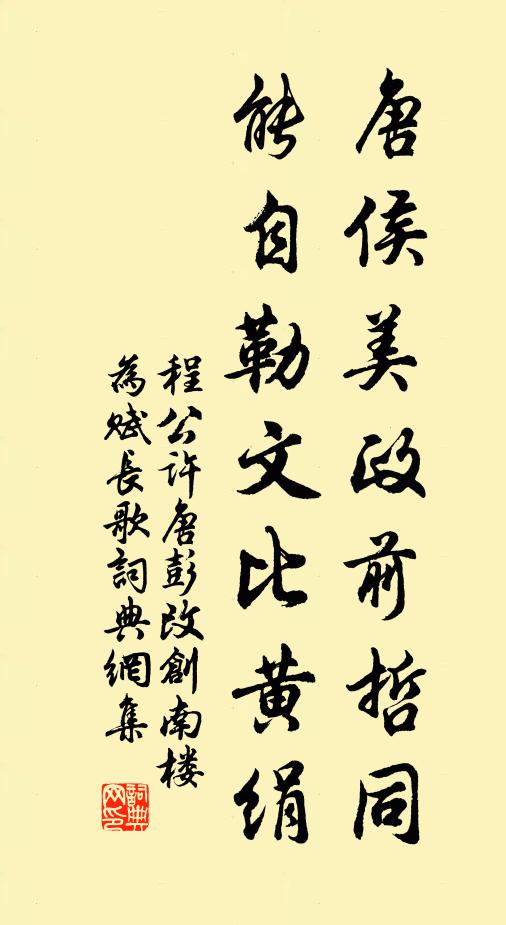 唐侯美政前哲同
能自勒文比黄绢
程公许唐彭改創南楼
為赋長歌詞典網集
詞典网印